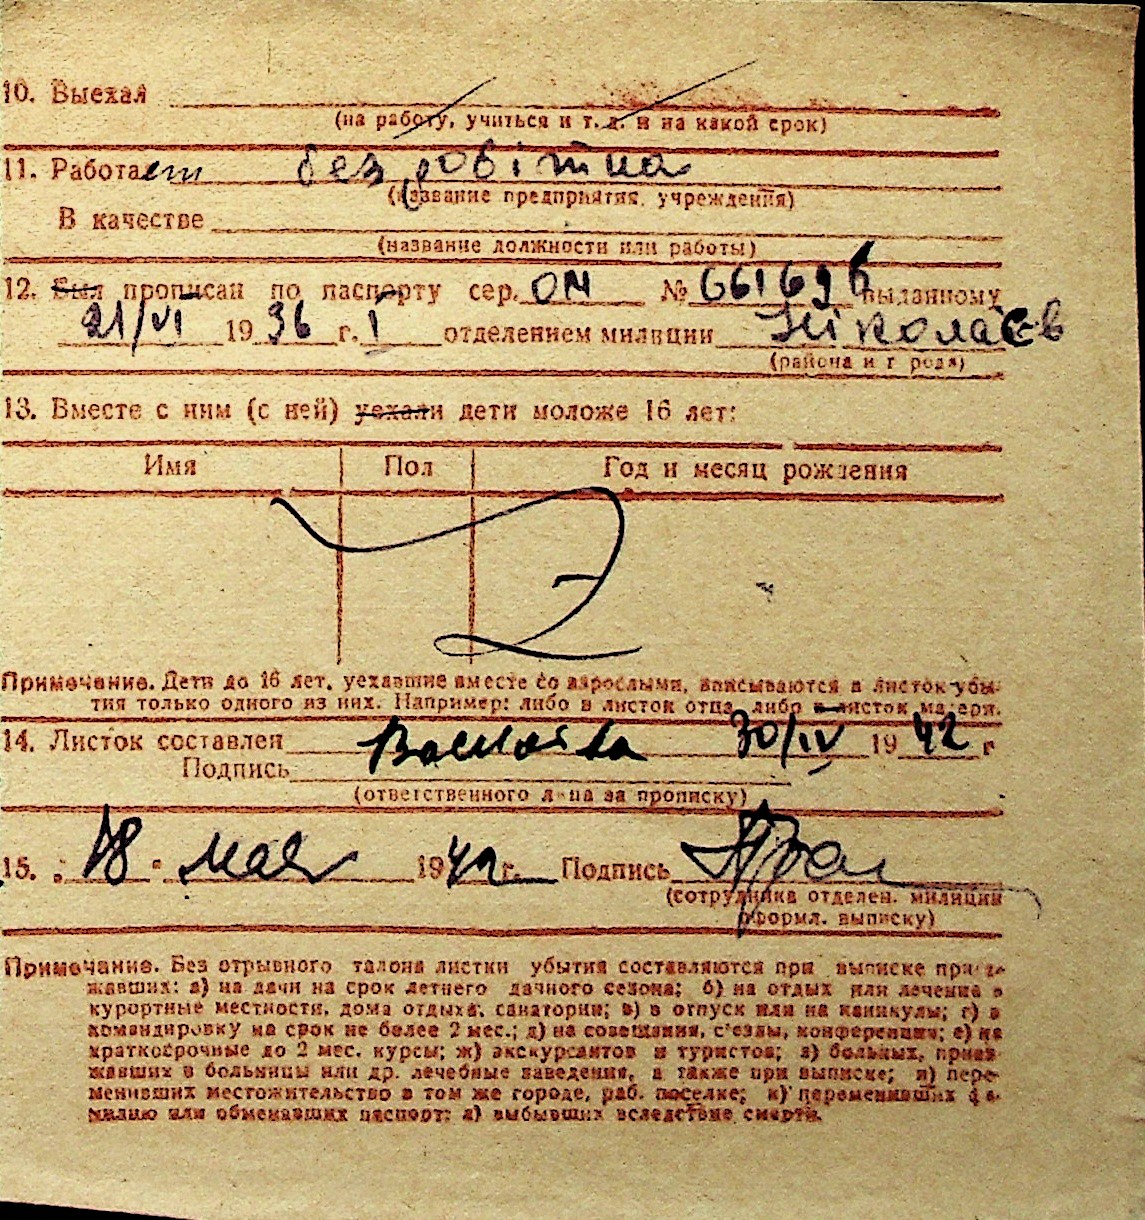 10. Выехал
(на работу, учиться и т. д. и на какой срок)
11. Работает безробітна
(название предприятия, учреждения)
В качестве
(название должности или работы)
12. Был прописан по паспорту сер. ОМ № 661696 выданному
21/VI 1936 г. I отделением милиции Ніколаєв
(района и города)
13. Вместе с ним (с ней) уехали дети моложе 16 лет:
Имя Пол Год и месяц рождения
Примечание. Дети до 16 лет, уехавшие вместе со взрослыми, вписываются в листок убы-
тия только одного из них. Например: либо в листок отца, либо в листок матери.
14. Листок составлен 30/IV 1942 г
Подпись
(ответственного лица за прописку)
15. 18 мая 1942 г. Подпись
(сотрудника отделен. милиции
оформл. выписку)
Примечание. Без отрывного талона листки убытия составляются при выписке приез-
жавших: а) на дачи на срок летнего дачного сезона; б) на отдых или лечение в
курортные местности, дома отдыха, санатории; в) в отпуск или на каникулы; г) в
командировку на срок не более 2 мес.; д) на совещания, с'езды, конференции; е) на
краткосрочные до 2 мес. курсы; ж) экскурсантов и туристов; з) больных, приез-
жавших в больницы или др. лечебные заведения, а также при выписке; и) пере-
менивших местожительство в том же городе, раб. поселке; к) переменивших фа-
милию или обменавших паспорт; л) выбывших вследствие смерти.